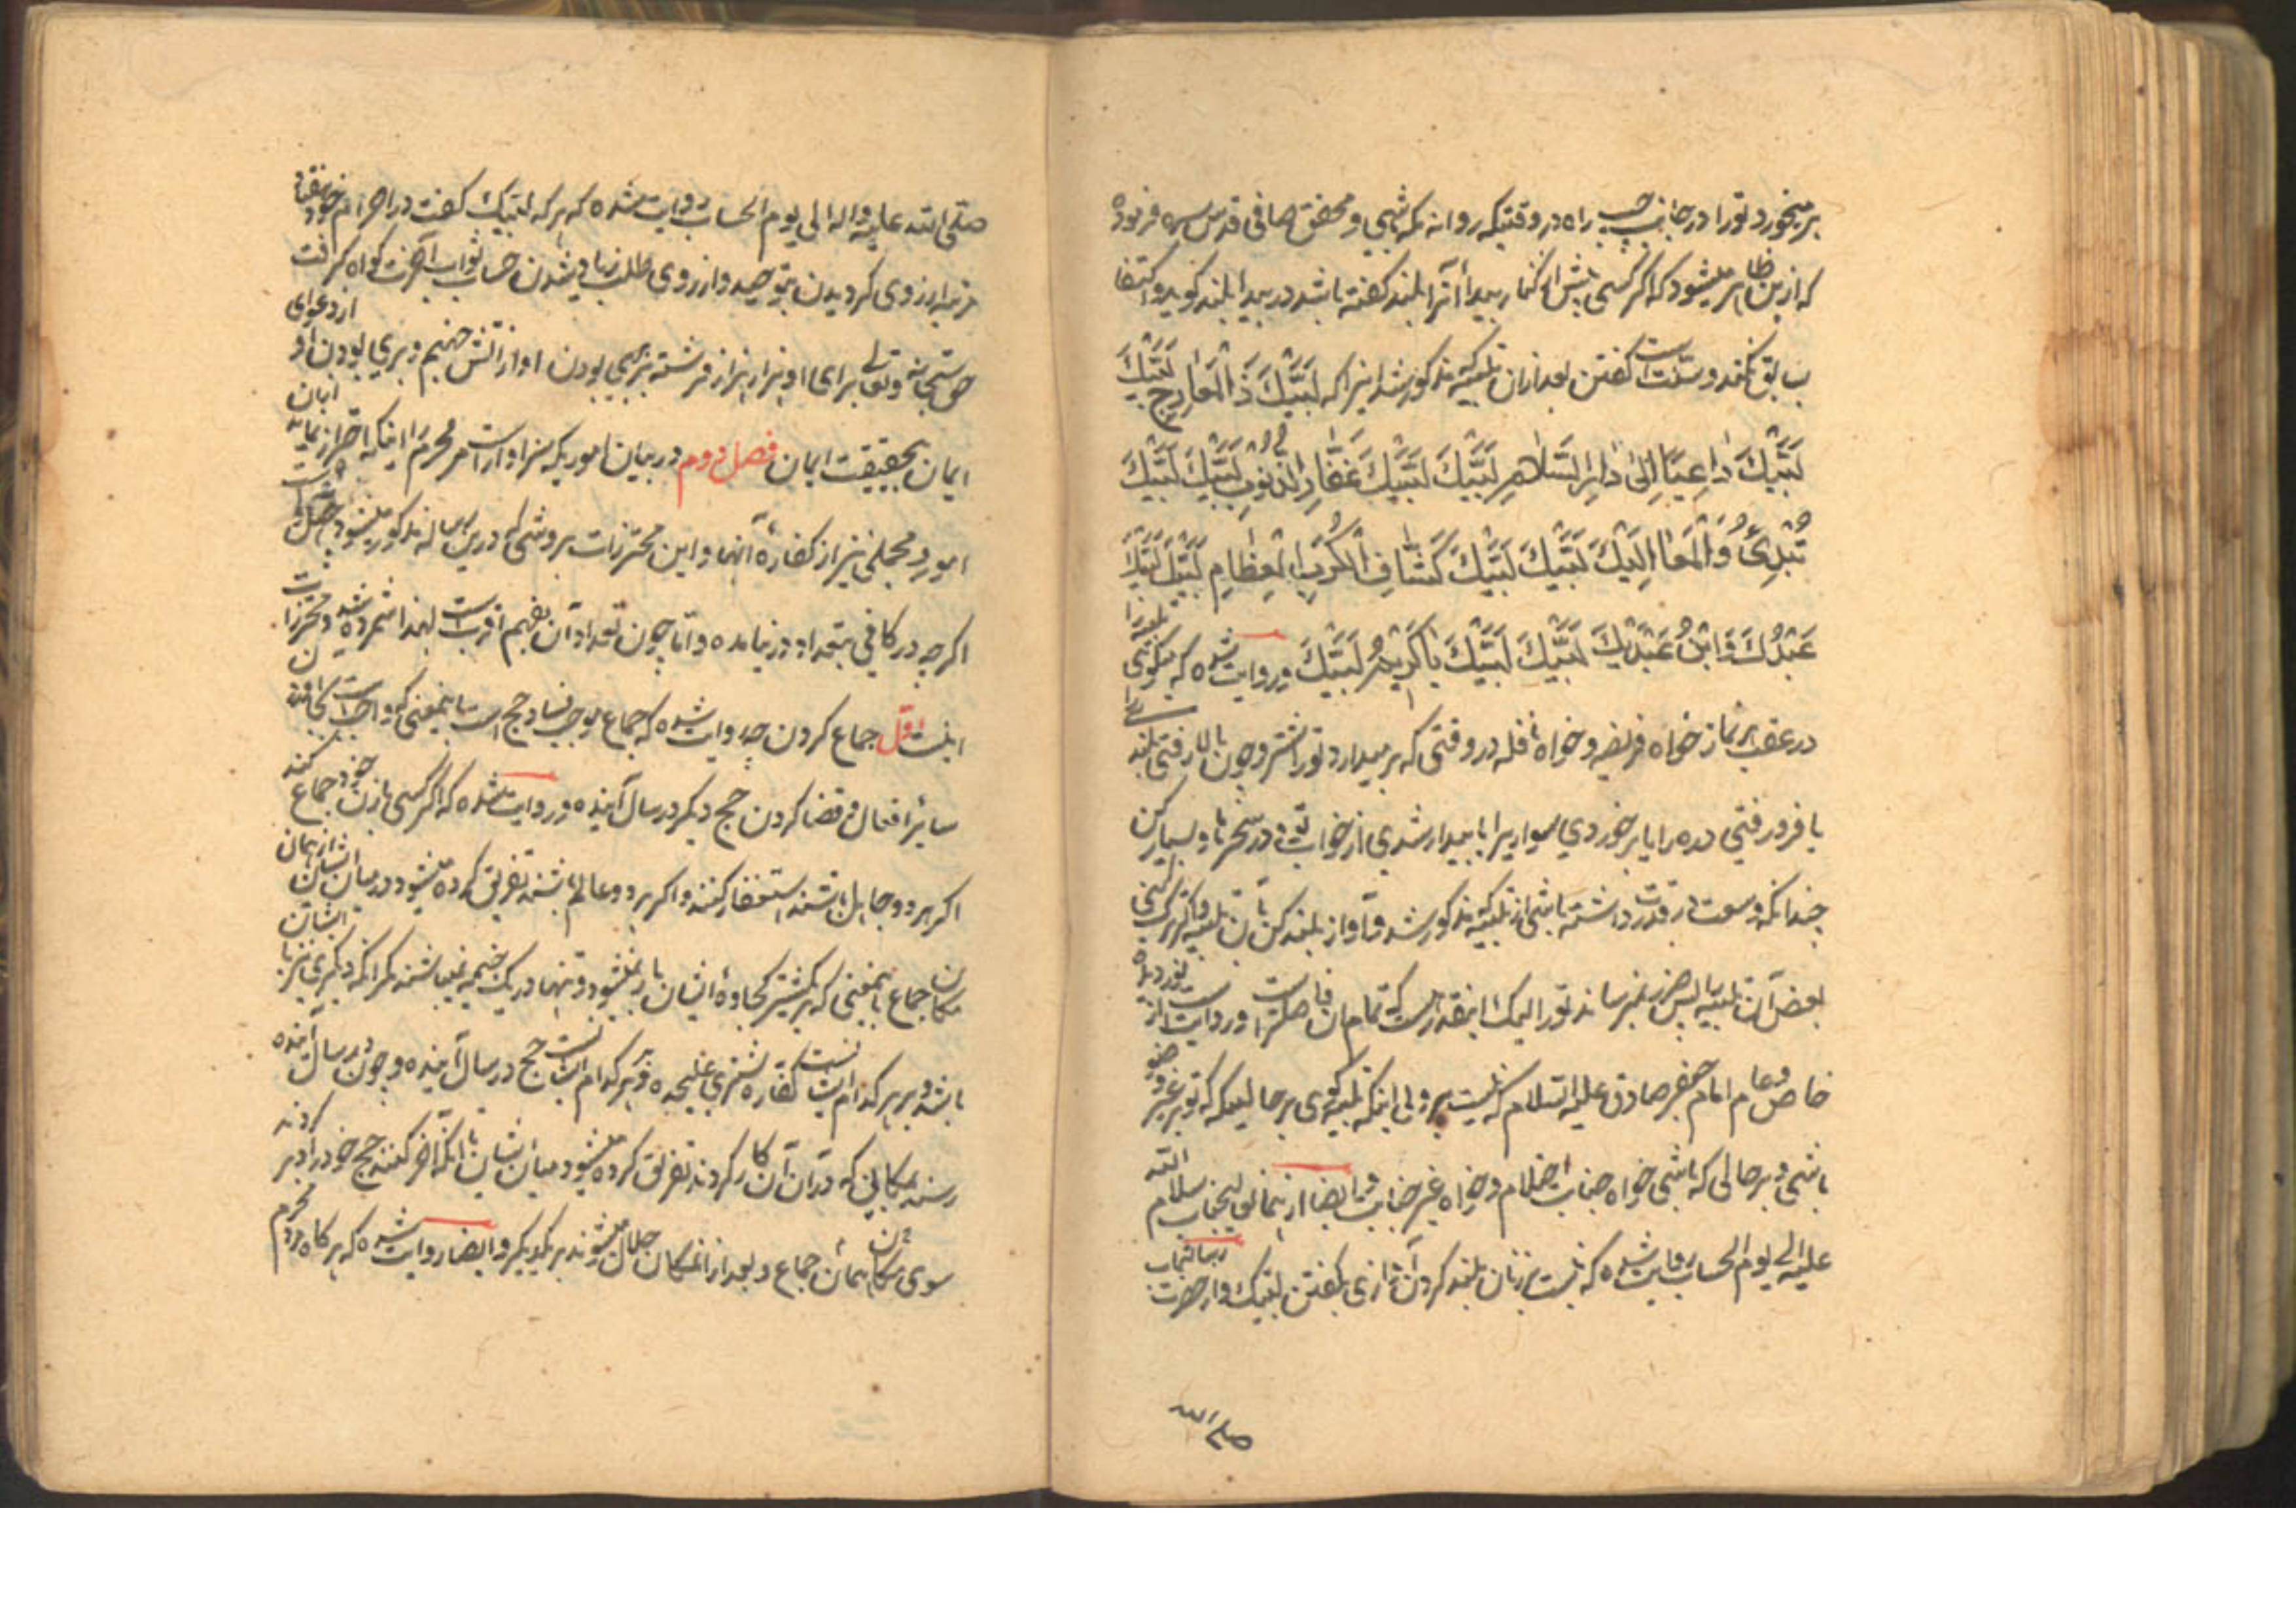 برمیخورد تو را در جانب راه در وقتیکه روانه مکه باشی و محقق صافی قدس سره فرموده
که ازین ظاهر میشود که اگر کسی پیش از کنار بیدا آنرا بلند گفته باشد در بیدا بلند گوید و اکتفا
بسابق نکند و سنت است گفتن بعد ازان تلبیه مذکور شد اینرا که لَبَّيْكَ ذَا الْمَعَارِجِ لَبَّيْكَ
لَبَّيْكَ دَاعِيًا اِلىٰ دَارِ السَّلَامِ لَبَّيْكَ لَبَّيْكَ غَفَّارَ الذُّنُوبِ لَبَّيْكَ لَبَّيْكَ
تُبْدِئُ وَالْمَعَادُ اِلَيْكَ لَبَّيْكَ لَبَّيْكَ كَشَّافَ الْكُرَبِ الْعِظَامِ لَبَّيْكَ لَبَّيْكَ
عَبْدُكَ وَابْنُ عَبْدَيْكَ لَبَّيْكَ لَبَّيْكَ يَا كَرِيمُ لَبَّيْكَ و روایت شده که میگوئی تلبیه را
در عقب هر نماز خواه فریضه و خواه نافله در وقتی که بر میدارد تو را شتر و چون بالا رفتی بلندی را
یا فرود رفتی دره را یا برخوردی سواریرا یا بیدار شدی از خواب و در سحرها و بسیار کن
چندانکه وسعت در قدرت داشته باشی از تلبیه مذکور شد و آواز بلند کن بآن تلبیه و اگر ترک کنی
بعض آن تلبیه پس ضرر نمیرساند تو را لیکن اینقدر هست که تمام آن فاضلتر است و روایت است از
خاص و عام امام جعفر صادق علیه السلام که نیست پروایی اینکه تلبیه گوئی بر حالیکه که تو بر غیر وضو
باشی و بر حالی که باشی خواه جنابت احتلام و خواه غیر جنابت و ایضا از عالیجناب سلام الله
علیه الی یوم الحساب روایت شده که نیست بر زنان بلند کردن آوازی بگفتن لبیک و از حضرت رسالتماب
صلی الله
صلی الله علیه واله الی یوم الحساب روایت شده که هر که لبیک گفت در احرام خود هفتاد
مرتبه از روی گرویدن بتوحید و از روی طلب زیاد شدن حساب ثواب آخرت گواه گرفت
حق سبحانه و تعالی برای او هزار هزار فرشته بر بری بودن او از آتش جهنم و بری بودن او از دعوای
ایمان بحقیقت ایمان فصل دوم در بیان اموریکه سزاوار است مر محرم را اینکه احتراز نماید ازان
امور و مجملی نیز از کفاره آنها و این محترزات بروشی که درین رساله مذکور میشود
اگرچه در کافی بتعداد در نیامده و اما چون تعداد آن بفهم اقرب است لهذا شمرده شد و محترزات
اینست اول جماع کردن چه روایت شده که جماع موجب فساد حج است باینمعنی که واجب است
سایر افعال و قضا کردن حج دیگر در سال آینده و روایت شده که اگر کسی با زن خود جماع کند
اگر هر دو جاهل باشند استغفار کنند و اگر هر دو عالم باشند تفریق کرده میشود در میان ایشان از همان
مکان جماع باینمعنی که بر یک شتر کجاوه ایشان بار نمیشود و تنها در یک خیمه نمیباشند مگر آنکه دیگری نیز با ایشان
باشد و بر هر کدام است کفاره شتری علیحده و بر هر کدام است حج در سال آینده و چون در سال آینده
رسند بمکانی که در آن آن کار کردند تفریق کرده میشود میان ایشان تا آنکه آخر کنند حج خود را
سوی مکان همان جماع و بعد از انمکان حلال میشوند بر یکدیگر و ایضا روایت شده که هر گاه مرد محرم